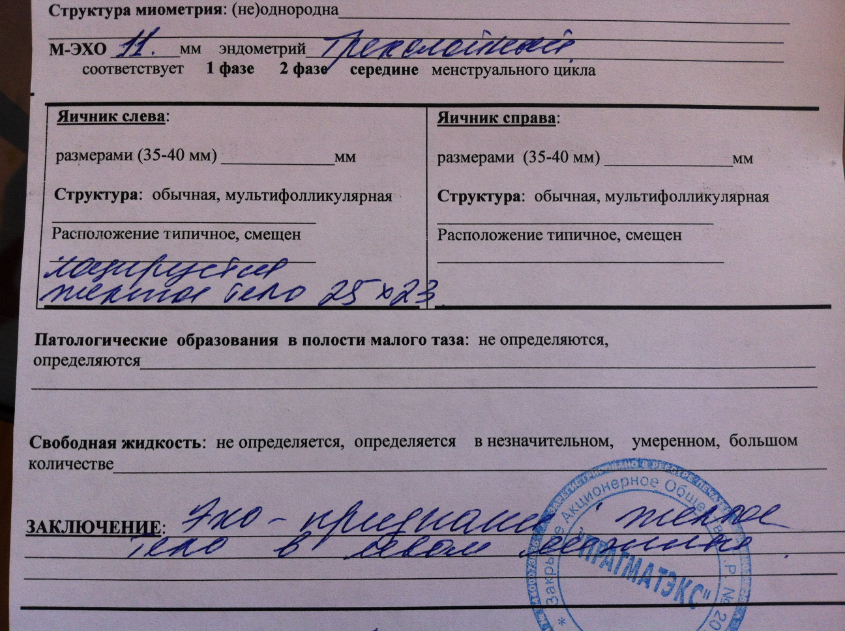 Структура миометрия: (не)однородна
М-ЭХО 11. мм эндометрий трехслойный
соответствует 1 фазе 2 фазе середине менструального цикла
Яичник слева:
размерами (35-40 мм) мм
Структура: обычная, мультифолликулярная
Расположение типичное, смещен
лоцируется
желтое тело 25 х 23
Яичник справа:
размерами (35-40 мм) мм
Структура: обычная, мультифолликулярная
Расположение типичное, смещен
Патологические образования в полости малого таза: не определяются,
определяются
Свободная жидкость: не определяется, определяется в незначительном, умеренном, большом
количестве
ЗАКЛЮЧЕНИЕ: Эхо-признаки желтое
тело в левом яичнике.
Закрытое Акционерное Общество
"ПРАГМАТЭКС"